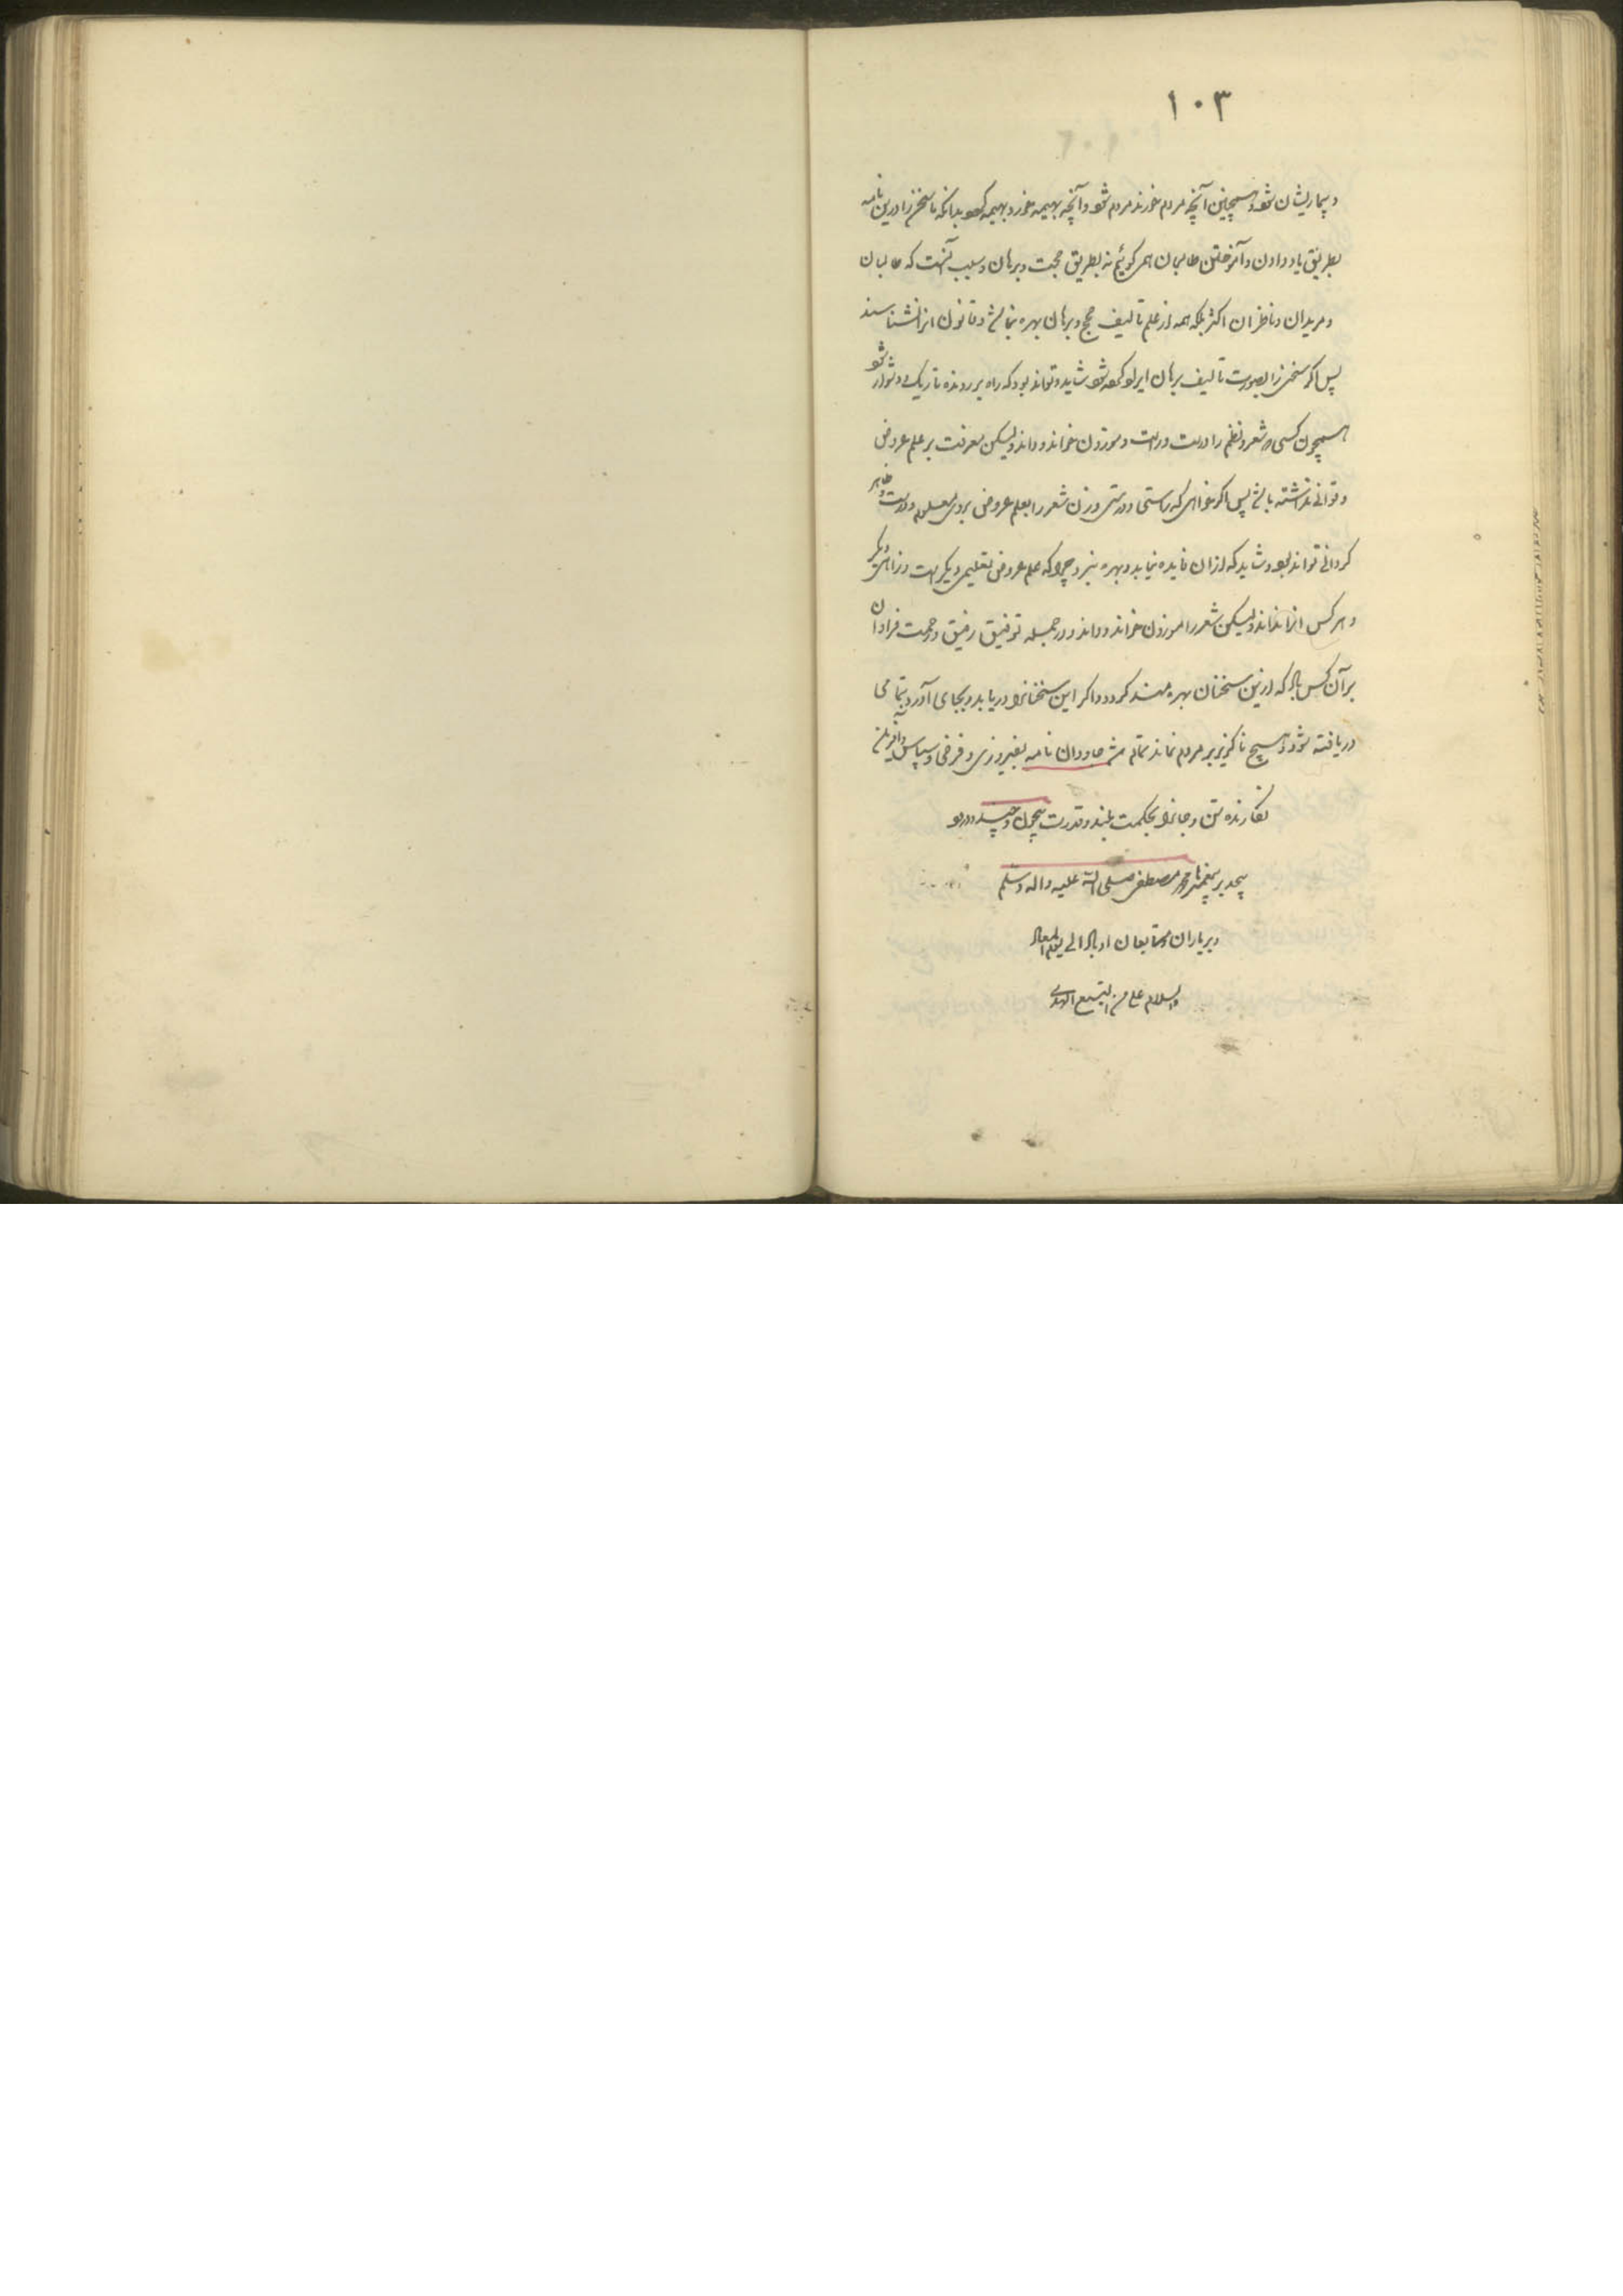 ۱۰۳
و بیماریشان شود و همچنین آنچه مردم خورند مردم شود و آنچه بهیمه خورد بهیمه گردد بدانکه ما سخن را درین نامه
بطریق یاد دادن و آموختن طالبان همی گوئیم نه بطریق حجت و برهان و سبب آنست که طالبان
و مریدان و ناظران اکثر بلکه همه از علم تالیف حجج و برهان بهره نباشد و قانون آنرا نشناسند
پس اگر سخن را بصورت تالیف برهان ایراد کرده شود شاید و تواند بود که راه بر رونده تاریک و دشوار شود
همچون کسی که شعر و نظم را درست و راست و موزون خواند و داند ولیکن معرفت بر علم عروض
و توانی نداشته باشد پس اگر خواهی که راستی و درستی وزن شعر را بعلم عروض بر وی معلوم و درست و ظاهر
گردانی تواند بود و شاید که از آن فایده نیابد و بهره نبرد چرا که علم عروض تعلیمی دیگر است و راهی دیگر
و هر کس آنرا نداند ولیکن شعر را موزون خواند و داند و در جمله توفیق رفیق و رحمت فراوان
بر آن کس باد که ازین سخنان بهره‌مند گردد و اگر این سخنانرا دریابد و بجای آورد بتمامی
دریافته شود و هیچ ناگزیر بر مردم نماند تمام شد جاودان نامه بفیروزی و فرخی و سپاس و آفرین
نگارنده تن و جانرا بحکمت بلند و قدرت بیچون و چند و درود
بیحد بر پیغمبر ما محمد مصطفی صلی الله علیه و آله و سلم
و بر یاران و متابعان او باد الی یوم المعاد
والسلام علی من اتبع الهدی